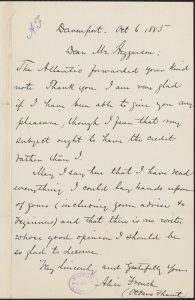 A.F.
Davenport. Oct 6 1885
Dear Mr. Higginson:
The Atlantic forwarded your kind
note. Thank you. I am very glad
if I have been able to give you any
pleasure, though I fear that my
subject ought to have the credit
rather than I.
May I say here that I have read
everything I could lay hands upon
of yours (including your advice to
beginners) and that there is no writer
whose good opinion I should be
so glad to deserve.
Very Sincerely and Gratefully Yours
Alice French
(Octave Thanet)